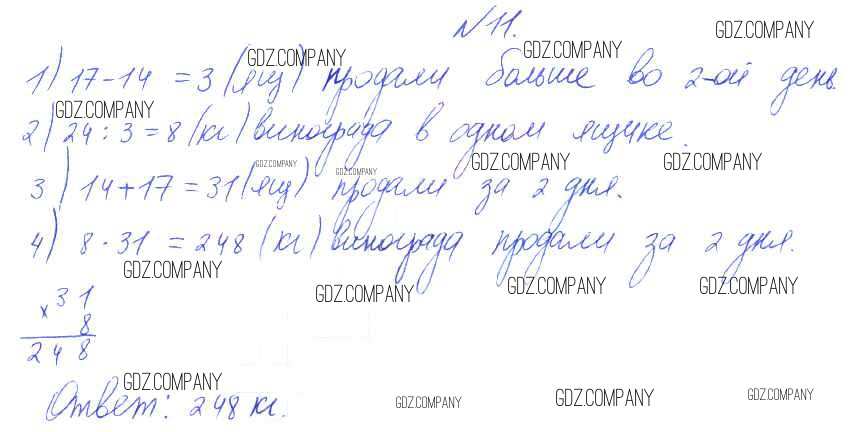 N 11.
GDZ.COMPANY
GDZ.COMPANY GDZ.COMPANY
1) 17-14 = 3 (ящ) продали больше во 2-ой день.
GDZ.COMPANY
2) 24 : 3 = 8 (кг) винограда в одном ящике.
GDZ.COMPANY GDZ.COMPANY GDZ.COMPANY GDZ.COMPANY
3) 14+17 = 31 (ящ) продали за 2 дня.
4) 8 · 31 = 248 (кг) винограда продали за 2 дня.
GDZ.COMPANY GDZ.COMPANY GDZ.COMPANY GDZ.COMPANY
31
x 8
248
GDZ.COMPANY GDZ.COMPANY GDZ.COMPANY GDZ.COMPANY
Ответ: 248 кг.